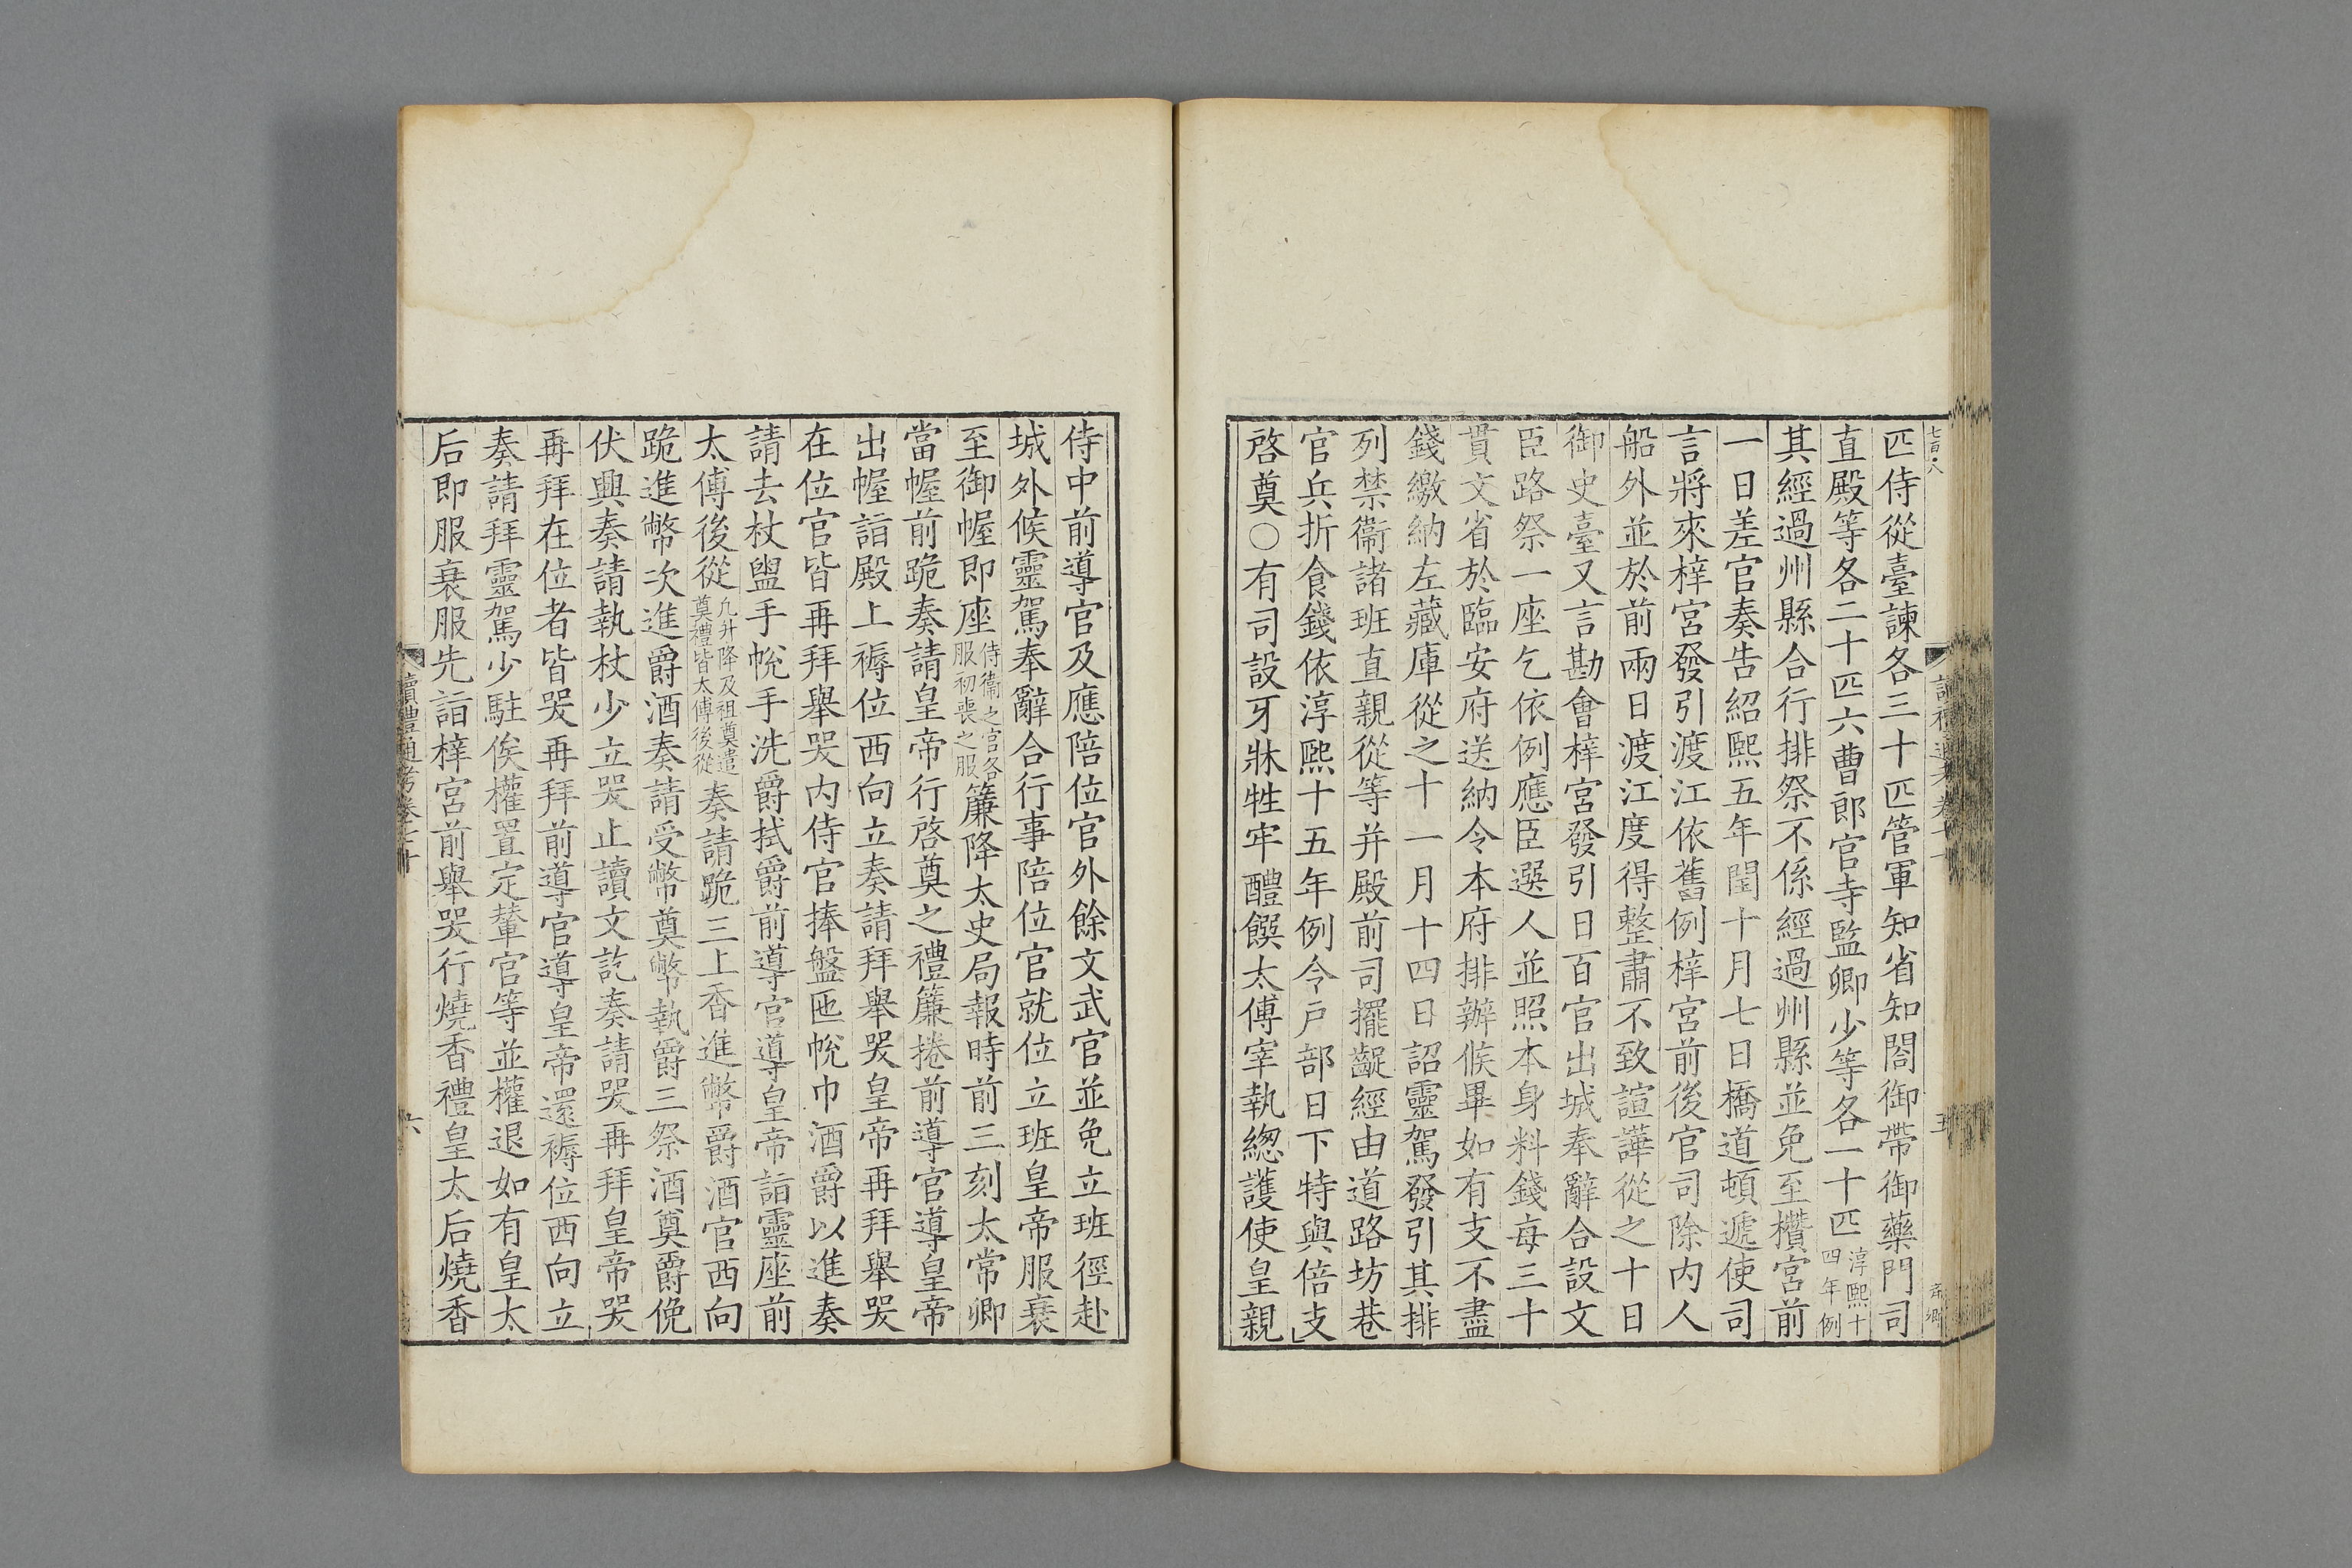 匹侍從臺諫各三十匹管軍知省知閤御帶御藥門司
直殿等各二十匹六曹郎官寺監卿少等各一十匹淳熙十四年例
其經過州縣合行排祭不係經過州縣並免至欑宮前
一日差官奏告紹熙五年閏十月七日橋道頓遞使司
言將來梓宮發引渡江依舊例梓宮前後官司除內人
船外並於前兩日渡江度得整肅不致諠譁從之十日
御史臺又言勘會梓宮發引日百官出城奉辭合設文
臣路祭一座乞依例應臣選人並照本身料錢每三十
貫文省於臨安府送納令本府排辦候畢如有支不盡
錢繳納左藏庫從之十一月十四日詔靈駕發引其排
列禁衞諸班直親從等并殿前司擺齪經由道路坊巷
官兵折食錢依淳熙十五年例令戶部日下特與倍支
啓奠○有司設牙牀牲牢醴饌太傅宰執緫護使皇親
侍中前導官及應陪位官外餘文武官並免立班徑赴
城外候靈駕奉辭合行事陪位官就位立班皇帝服衰
至御幄即座侍衞之官各服初喪之服簾降太史局報時前三刻太常卿
當幄前跪奏請皇帝行啓奠之禮簾捲前導官導皇帝
出幄詣殿上褥位西向立奏請拜舉哭皇帝再拜舉哭
在位官皆再拜舉哭內侍官捧盤匜帨巾酒爵以進奏
請去杖盥手帨手洗爵拭爵前導官導皇帝詣靈座前
太傅後從凡升降及祖奠遣奠禮皆太傅後從奏請跪三上香進幣爵酒官西向
跪進幣次進爵酒奏請受幣奠幣執爵三祭酒奠爵俛
伏興奏請執杖少立哭止讀文訖奏請哭再拜皇帝哭
再拜在位者皆哭再拜前導官導皇帝還褥位西向立
奏請拜靈駕少駐俟權置定輦官等並權退如有皇太
后即服衰服先詣梓宮前舉哭行燒香禮皇太后燒香
讀禮通考卷七十
六